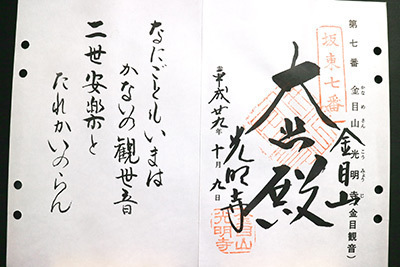 第七番 金目山 光明寺(金目観音)
かなめさん こうみょうじ
坂東七番
金目山
大悲殿
平成廿九年十月九日
光明寺
金目山
光明寺
なにごともいまは
かないの観世音
二世安楽と
たれかいのらん